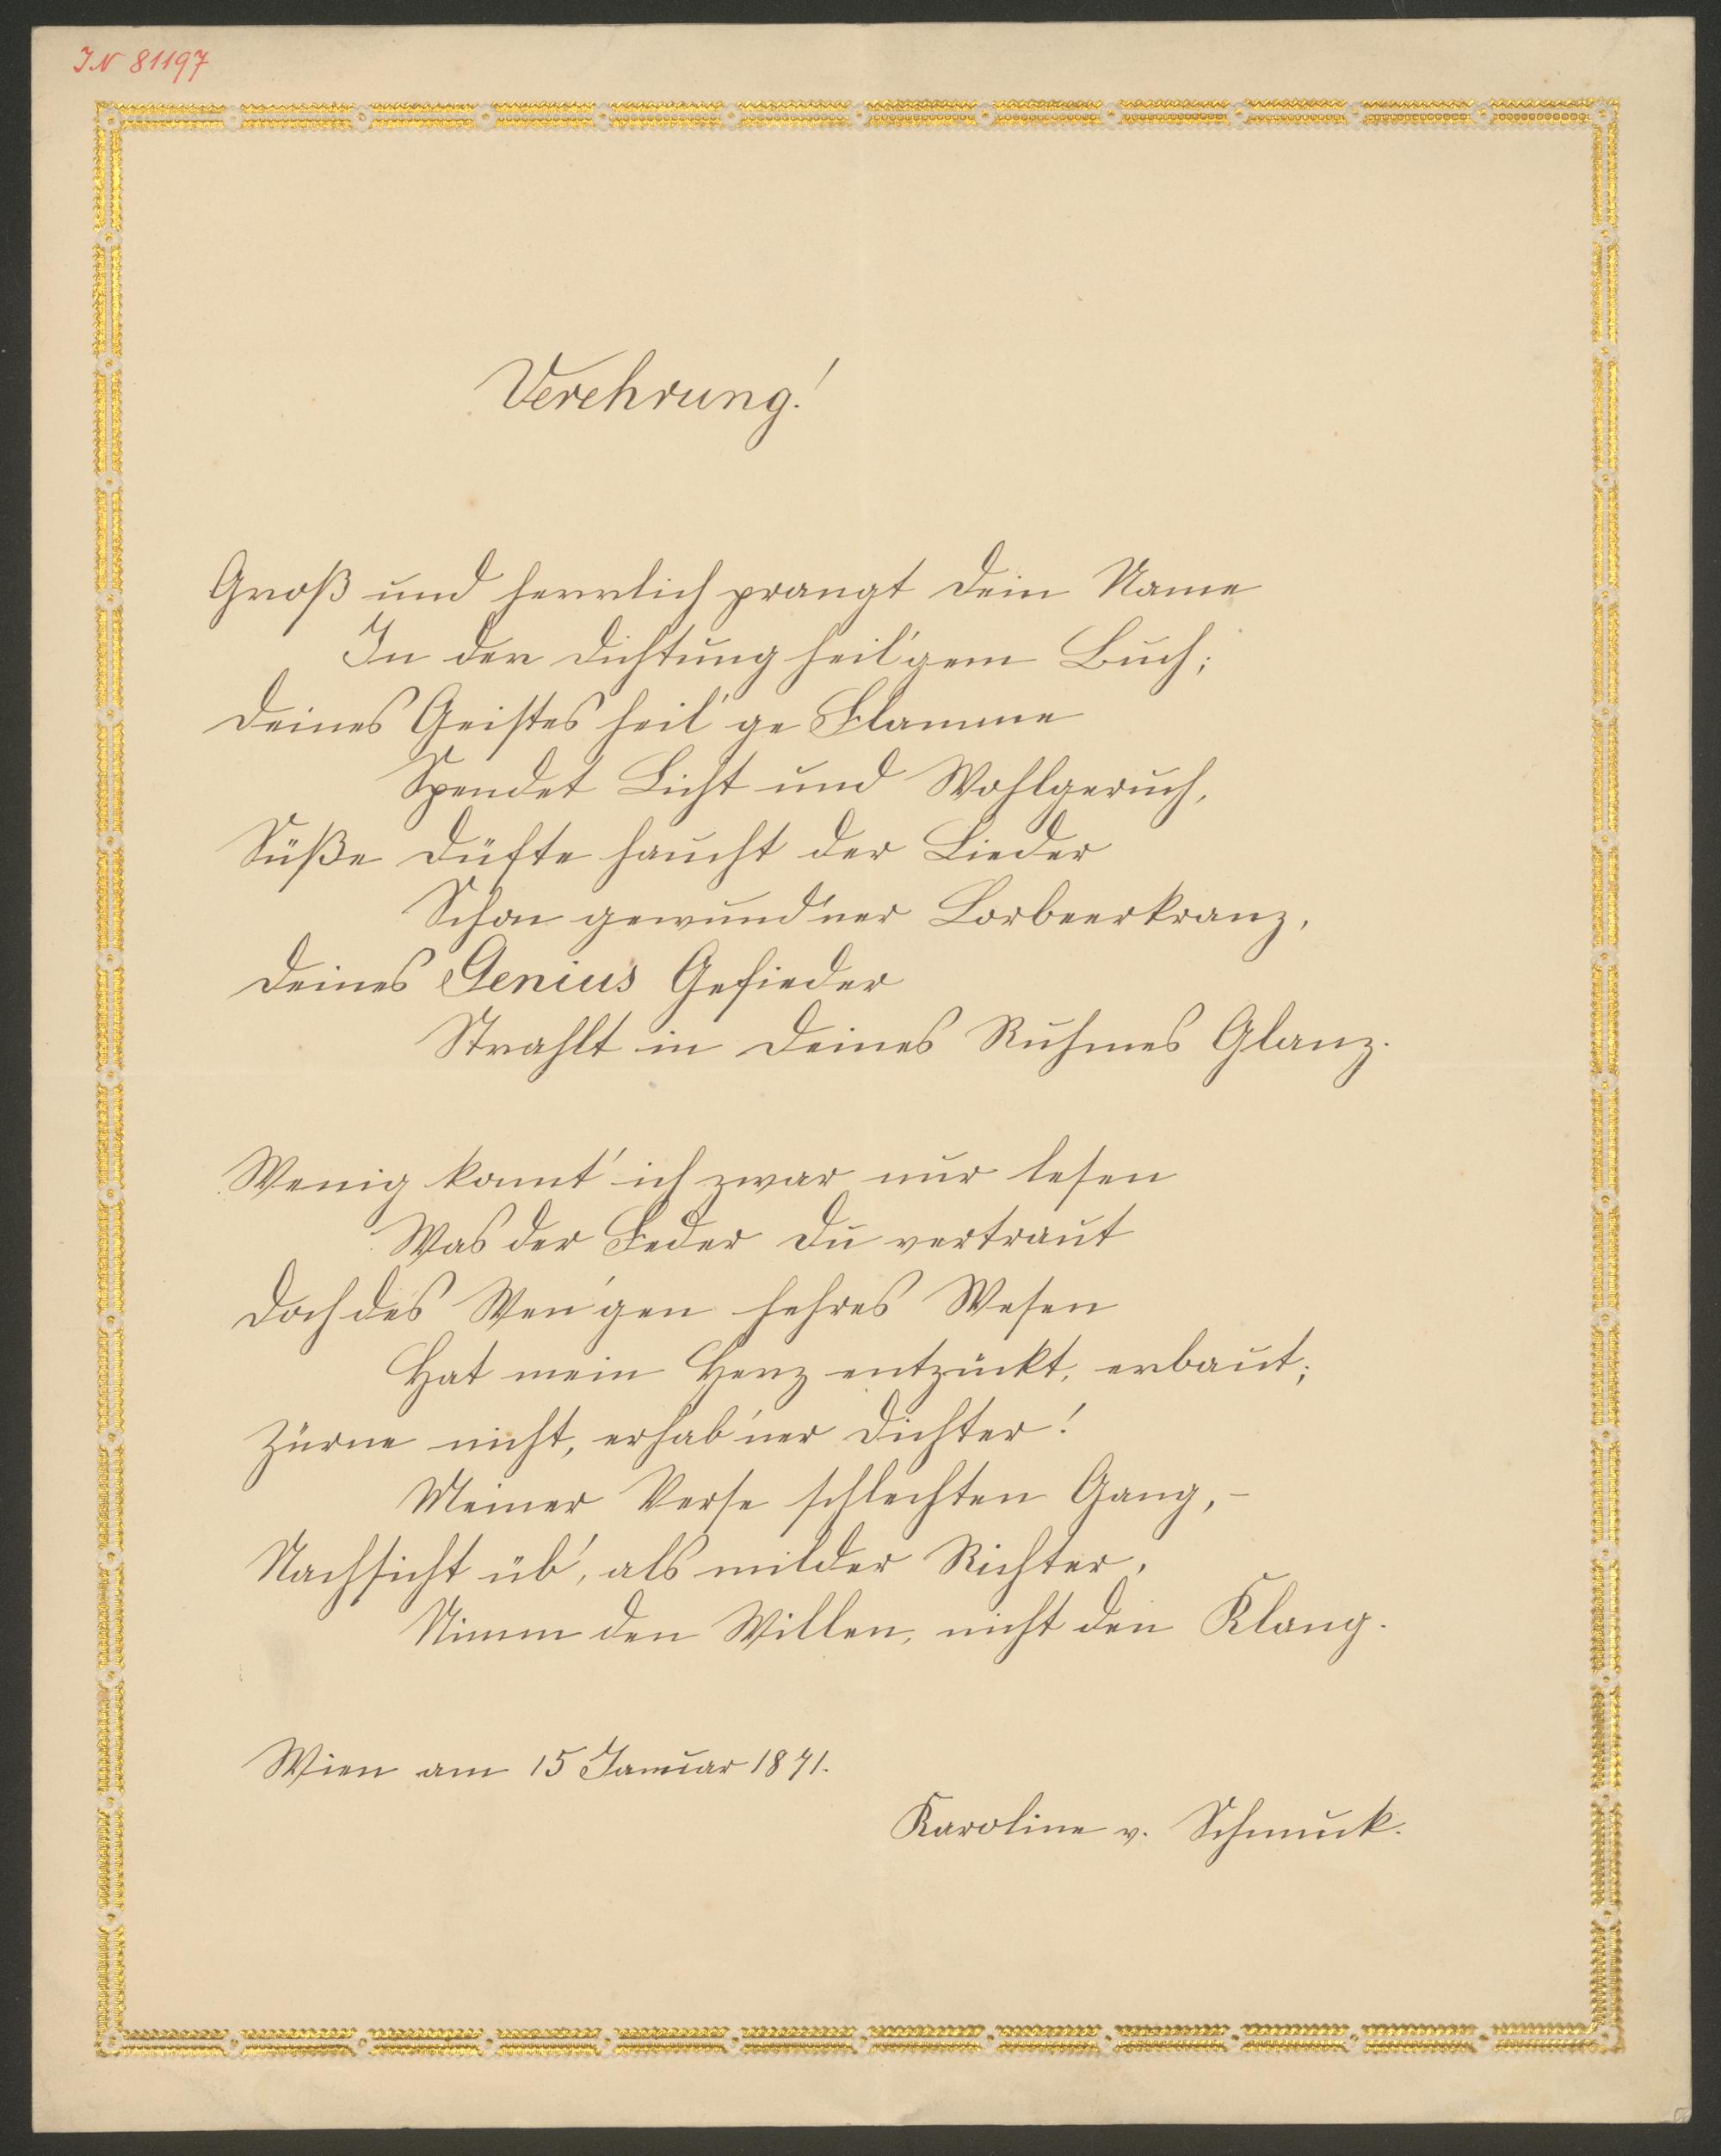 IN 81197
Verehrung!
Groß und herrlich prangt Dein Name
In der Dichtung heil'gem Buch;
Deines Geistes heil'ge Flamme
Spendet Licht und Wohlgeruch,
Süße Düfte haucht der Lieder
Schon gewund'ner Lorbeerkranz,
Deines Genius Gefieder
Strahlt in Deines Ruhmes Glanz.
Wenig konnt' ich zwar nur lesen
Was der Feder Du vertraut
Doch des Wen'gen hehres Wesen
Hat mein Herz entzückt, erbaut;
Zürne nicht, erhab'ner Dichter!
Meiner Verse schlechten Gang,–
Nachsicht üb', als milder Richter,
Nimm den Willen, nicht den Klang.
Wien am 15 Januar 1871.
Karoline v. Schmuck.